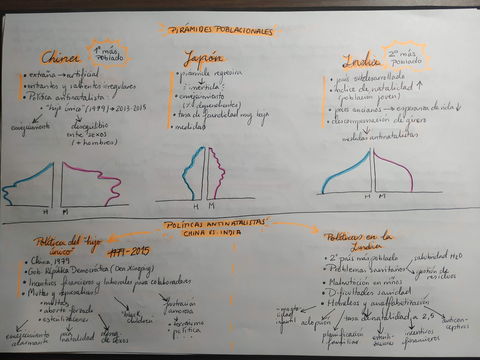 PIRÁMIDES POBLACIONALES
China
1º más poblado
• extraña → artificial
• entrantes y salientes irregulares
• Política antinatalista:
"hijo único" (1979) → 2013-2015
envejecimiento
desequilibrio entre sexos
(+ hombres)
Japón
• pirámide regresiva
• envejecimiento
tasa de fecundidad muy baja
• medidas
India
2º más poblado
• país subdesarrollado
• índice de natalidad ↑
(población joven)
• pocos ancianos → esperanza de vida ↓
• descompensación de género
medidas antinatalistas
H M
H M
H M
POLÍTICAS ANTINATALISTAS
CHINA VS. INDIA
Política del "hijo único"
1979-2015
• China, 1979
• Gob. República Democrática (Den Xiaoping)
• Incentivos financieros y laborales para colaboradores
• Multas y represalias
• multas
• aborto forzado
• esterilizaciones
envejecimiento alarmante
natalidad
de sexos
Políticas en la India
• 2º país más poblado
• Problemas sanitarios
salubridad H2O
gestión de residuos
• Malnutrición en niños
• Dificultades sanidad
• Homeless y analfabetización
mortalidad infantil
adopción
tasa de natalidad a 2,5
anticonceptivos
planificación familiar
incentivos financieros